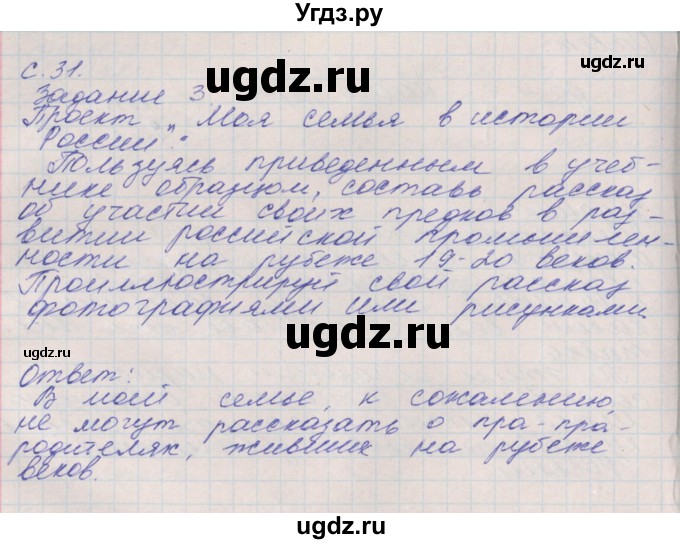 Угдз.ру
с. 31.
ugdz.ru
Задание 3
ugdz.ru
Проект „Моя семья в истории
России".
Пользуясь приведенным в учеб-
нике образцом, составь рассказ
ugdz.ru
об участии своих предков в раз-
витии российской промышлен-
ности на рубеже 19-20 веков.
Проиллюстрируй свой рассказ
фотографиями или рисунками.
ugdz.ru
ugdz.ru
ugdz.ru
Ответ:
В моей семье, к сожалению,
не могут рассказать о пра-пра-
родителях, живших на рубеже
веков.
ugdz.ru
ugdz.ru